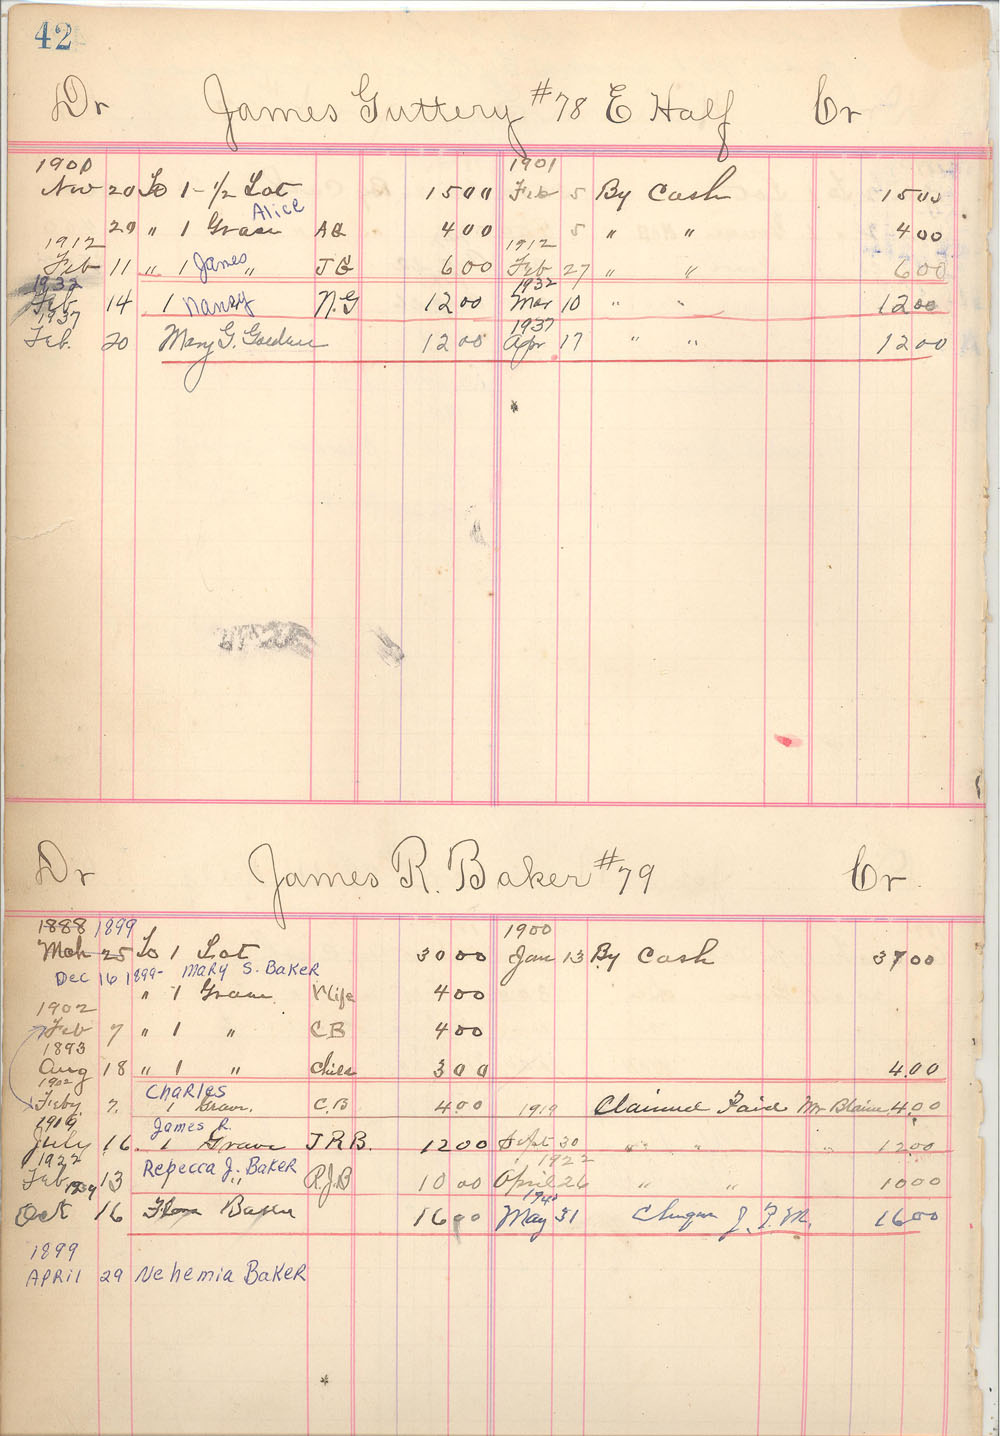 42
Dr James Guttery #78 E Half Cr
1900 1901
Nov 20 To 1-1/2 Lot 15 00 Feb 5 By Cash 15 00
Alice
20 " 1 Grave AG 4 00 5 " " 4 00
1912 1912
Feb 11 " 1 James " JG 6 00 Feb 27 " " 6 00
1932 1932
Feb 14 1 Nancy N.G 12 00 Mar 10 " " 12 00
1937 1937
Feb. 20 Mary G. Golden 12 00 Apr 17 " " 12 00
Dr James R. Baker #79 Cr
1888 1899 1900
Mch 25 To 1 Lot 30 00 Jan 13 By Cash 37 00
Dec 16 1899- Mary S. Baker
" 1 Grave Wife 4 00
1902
Feb 7 " 1 " CB 4 00
1893
Aug 18 " 1 " Child 3 00 4.00
1902 Charles
Feby. 7. 1 Grave. C.B 4 00 1919 Claimed Paid Mr Blaine 4.00
1919 James R.
July 16. 1 Grave J.R.B. 12 00 Sept 30 " " " 12 00
1922 1922
Feb 13 Repecca J. Baker R.J.B 10 00 April 26 " " 10 00
1939 1940
Oct 16 Flora Baker 16 00 May 31 J. F. M. 16 00
1899
April 29 Nehemia Baker